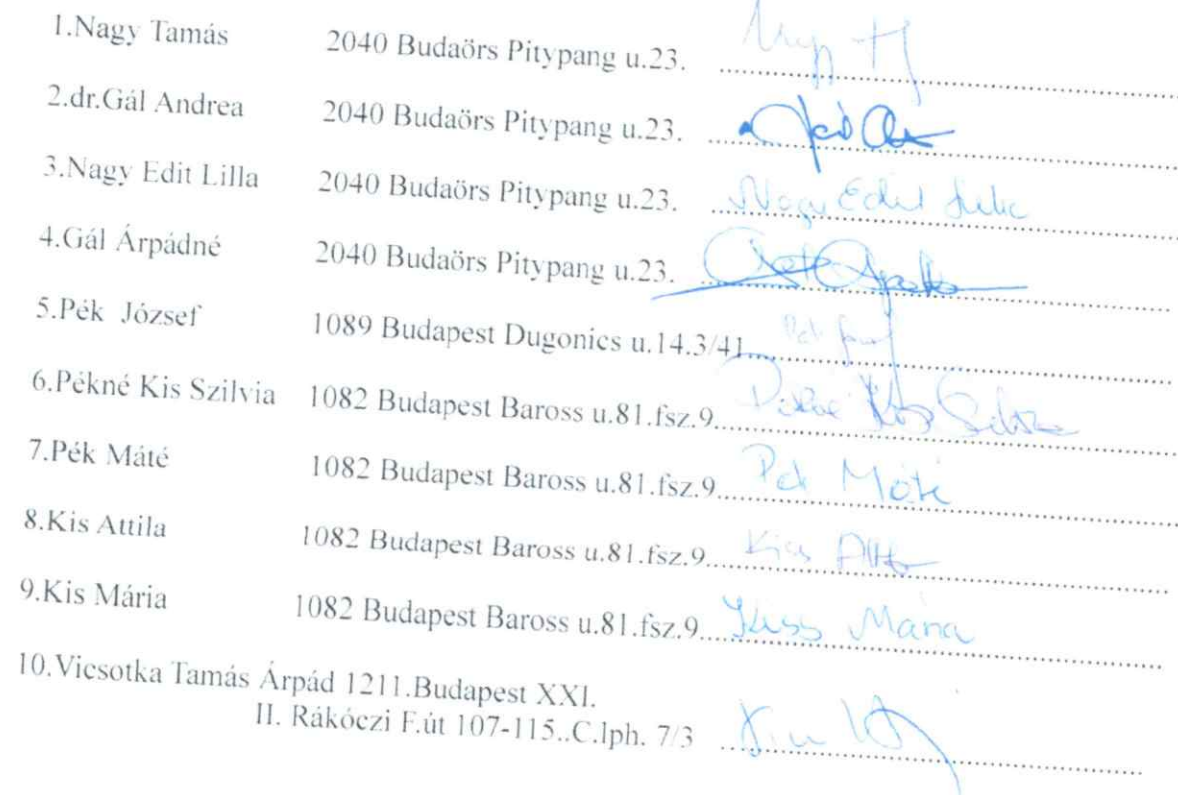 1.Nagy Tamás 2040 Budaörs Pitypang u.23. ........
2.dr.Gál Andrea 2040 Budaörs Pitypang u.23. ........
3.Nagy Edit Lilla 2040 Budaörs Pitypang u.23. Nagy Edit Lilla
4.Gál Árpádné 2040 Budaörs Pitypang u.23. ........
5.Pék József 1089 Budapest Dugonics u.14.3/41 ........
6.Pékné Kis Szilvia 1082 Budapest Baross u.81.fsz.9. Pékné Kis Szilvia
7.Pék Máté 1082 Budapest Baross u.81.fsz.9. Pék Máté
8.Kis Attila 1082 Budapest Baross u.81.fsz.9. Kiss
9.Kis Mária 1082 Budapest Baross u.81.fsz.9. Kiss Mária
10.Vicsotka Tamás Árpád 1211.Budapest XXI.
II. Rákóczi F.út 107-115..C.lph. 7/3 ........